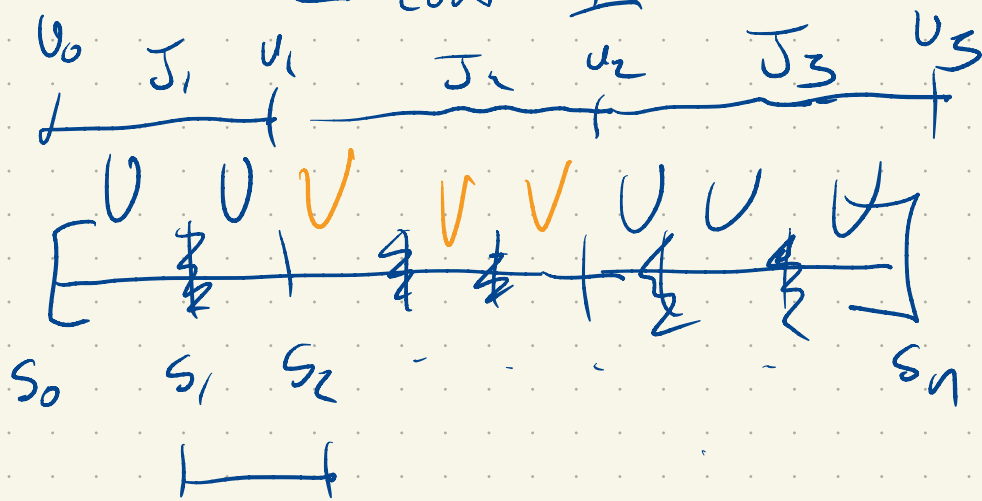 U₀ J₁ U₁ J₂ U₂ J₃ U₃
U U U U U U U U
[ ]
S₀ S₁ S₂ - - - - Sₙ